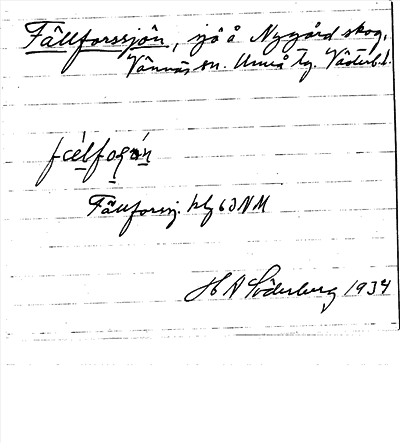 Fällforssjön, sjö å Nygård skog,
Vännäs sn. Umeå tg. Västerb. l.
Fällforssj. blg 63 NM
H A Söderberg 1934